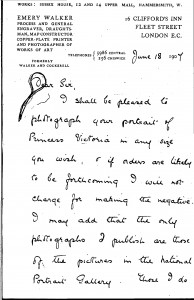 WORKS: SUSSEX HOUSE, 12 AND 14 UPPER MALL, HAMMERSMITH, W.
EMERY WALKER
PROCESS AND GENERAL
ENGRAVER, DRAUGHTS-
MAN, MAP-CONSTRUCTOR
COPPER-PLATE PRINTER
AND PHOTOGRAPHER OF
WORKS OF ART
FORMERLY
WALKER AND COCKERELL
16 CLIFFORD'S INN
FLEET STREET
LONDON E.C.
TELEPHONES
CENTRAL
256 CHISWICK
June 18 1907
Dear Sir,
I shall be pleased to
photograph your portrait of
Princess Victoria in any size
you wish, & if orders are likely
to be forthcoming I will not
charge for making the negative.
I may add that the only
photographs I publish are those
of the pictures in the National
Portrait Gallery. These I do